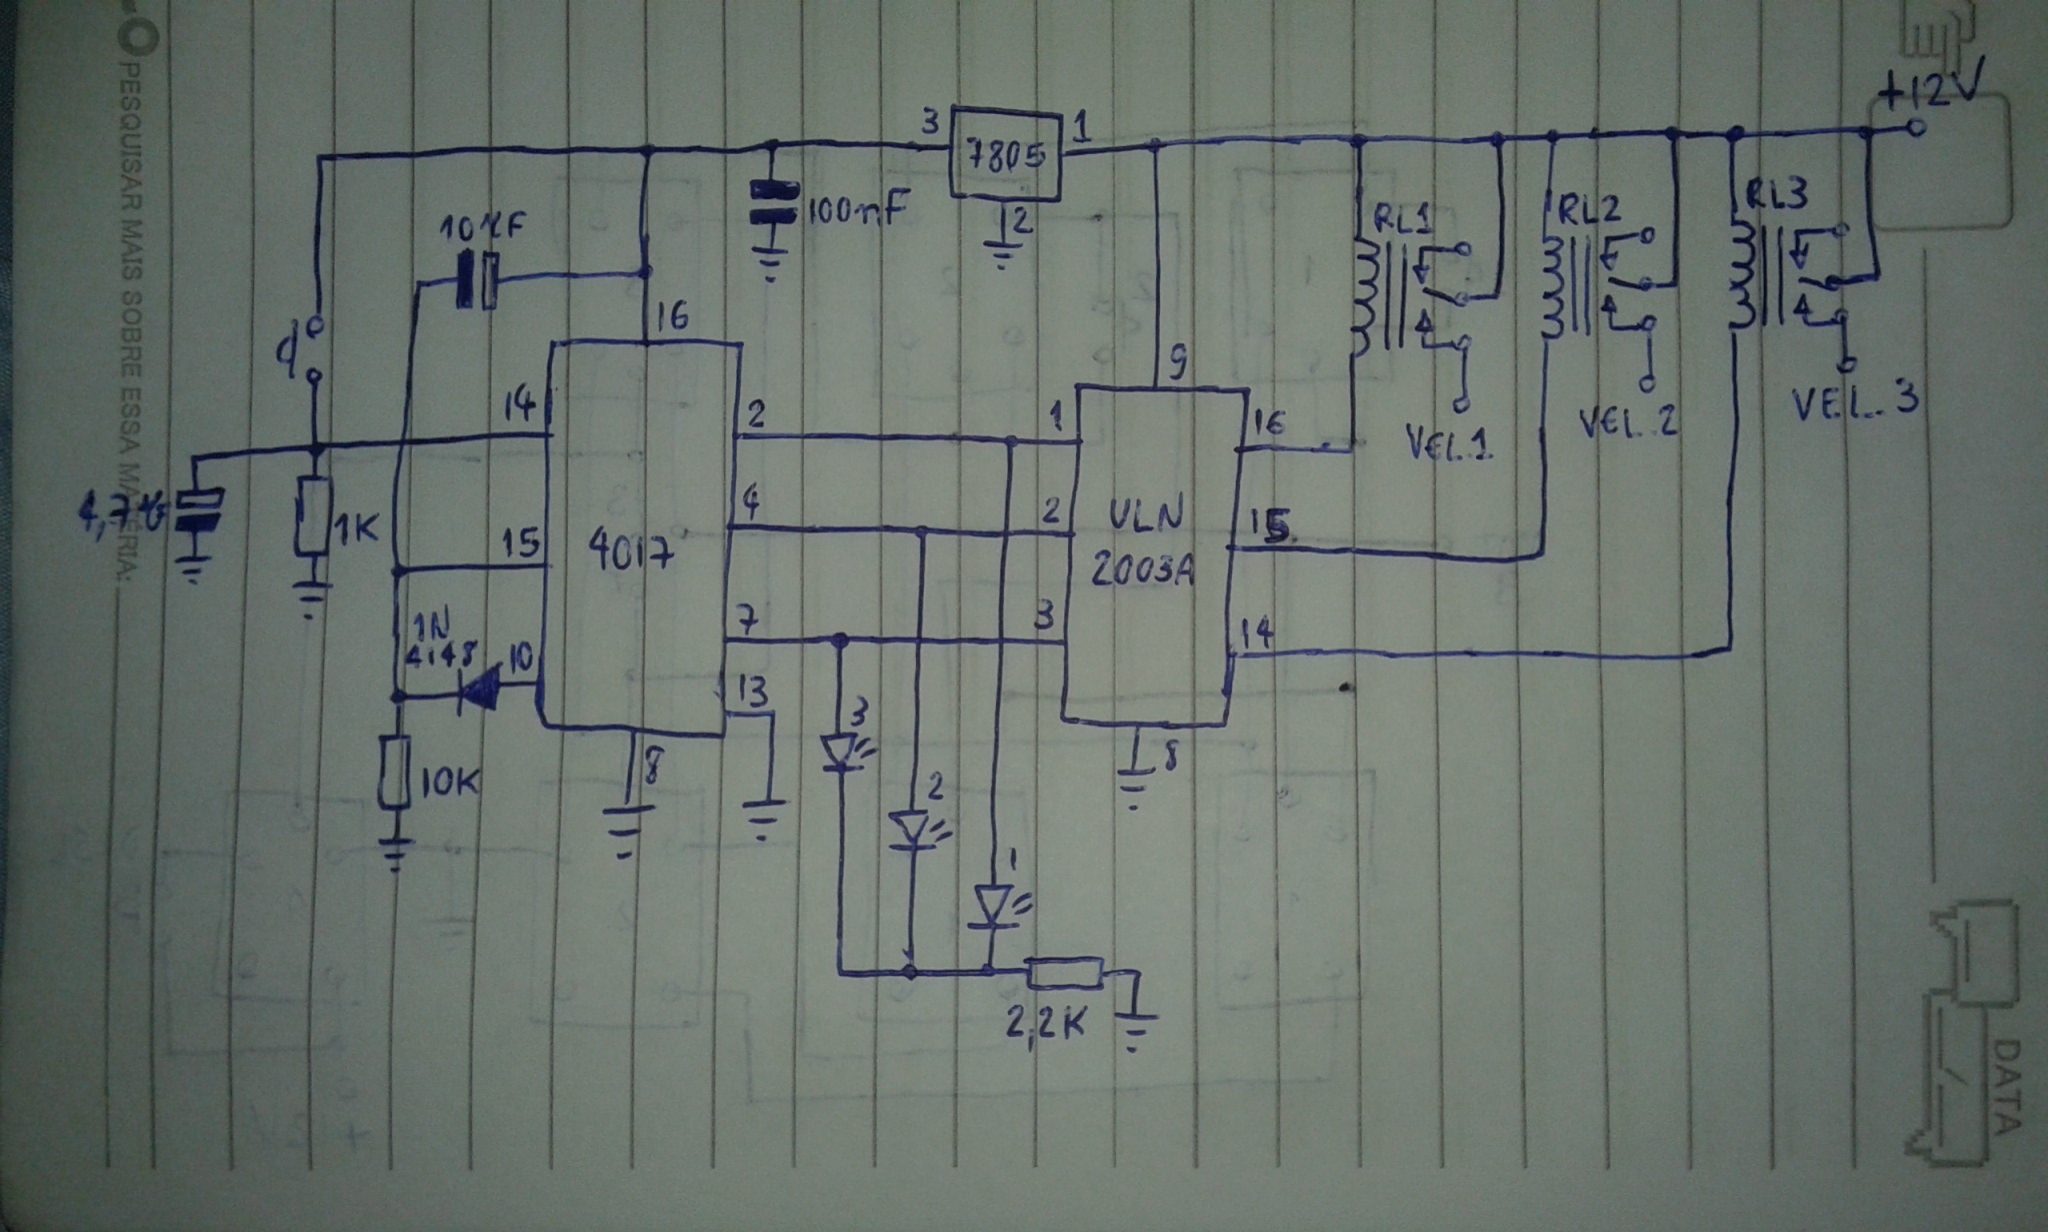 PESQUISAR MAIS SOBRE ESSA MATÉRIA:
+12V
3
7805
1
2
100nF
10µF
16
RL1
RL2
RL3
14
2
1
9
16
VEL.1
VEL.2
VEL.3
4
2
15
1K
15
4017
ULN
2003A
1N
4148
10
7
3
14
13
3
10K
8
2
8
1
2,2K
DATA